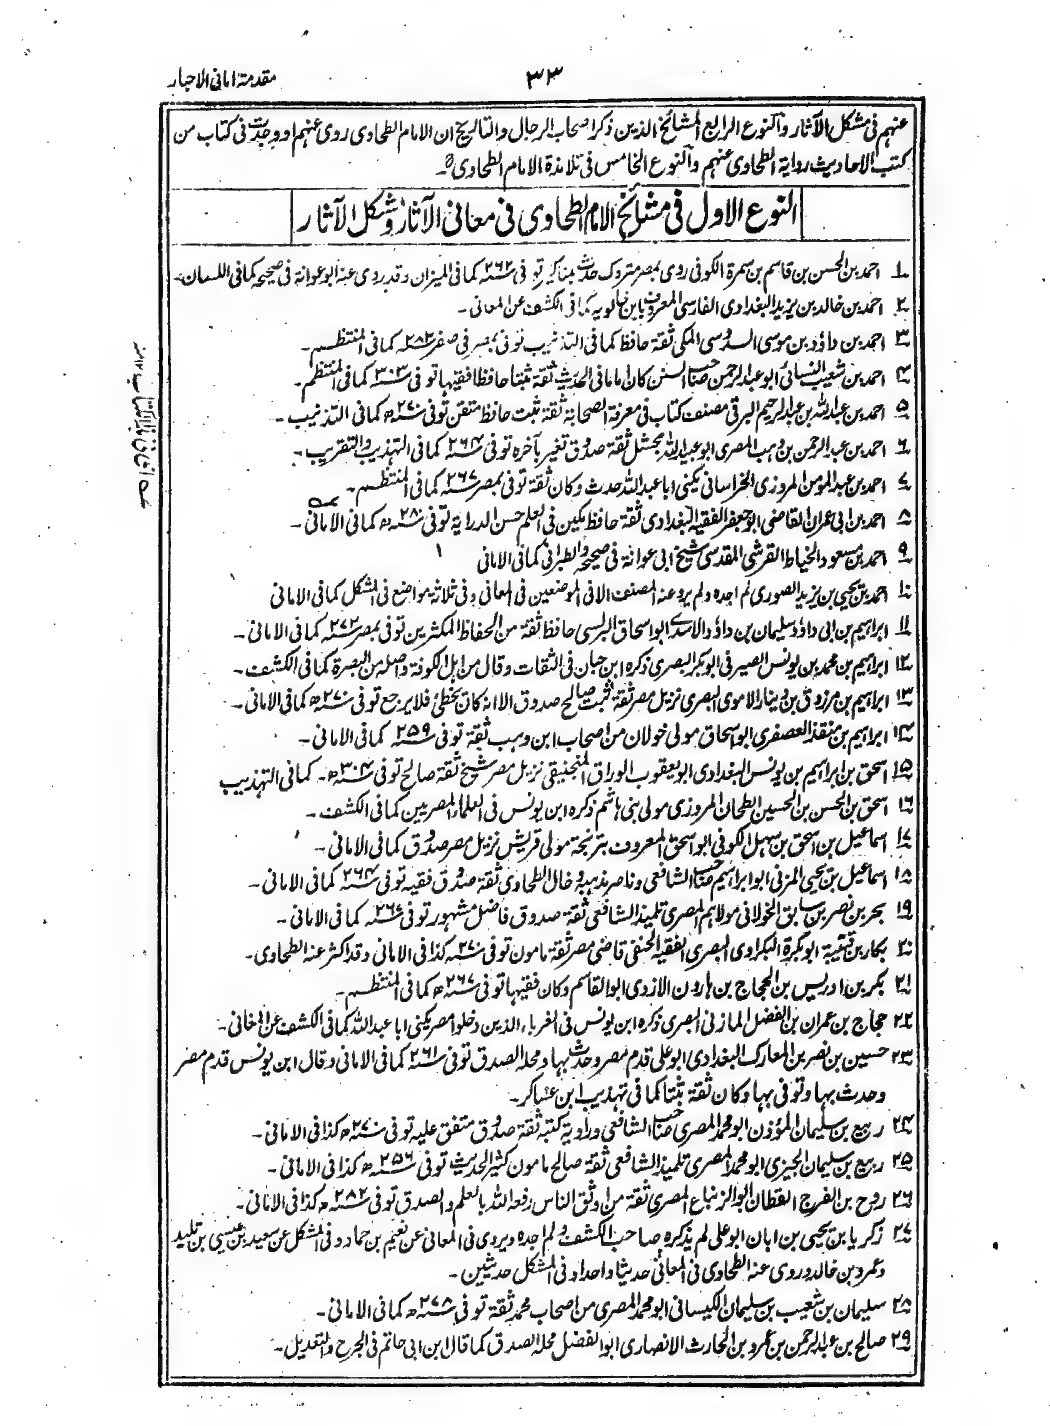 مقدمة امانی الاحبار
۳۳
عنهم فی مشکل الآثار والنوع الرابع المشائخ الذین ذکر اصحاب الرجال والتاریخ ان الامام الطحاوی روی عنهم ووجدت فی کتاب من
کتب الاحادیث روایة الطحاوی عنهم والنوع الخامس فی تلامذة الامام الطحاوی۔
النوع الاول فی مشائخ الامام الطحاوی فی معانی الآثار ومشکل الآثار
۱ احمد بن الحسن بن قاسم بن سمرة الکوفی روی بمصر متروک حدث بمناکیر توفی سنة ۲۶۲ کما فی المیزان وقد روی عنه ابو عوانة فی صحیحه کما فی اللسان۔
۲ احمد بن خالد بن یزید البغدادی الفارسی المعروف بابن خالویه کما فی الکشف عن المعانی۔
۳ احمد بن داؤد بن موسی السدوسی المکی ثقة حافظ کما فی التذنیب توفی بمصر فی صفر سنة ۲۸۲ کما فی المنتظم۔
۴ احمد بن شعیب النسائی ابو عبد الرحمن صاحب السنن کان اماما فی الحدیث ثقة ثبتا حافظا فقیها توفی سنة ۳۰۳ کما فی المنتظم۔
۵ احمد بن عبد الله بن عبد الرحیم البرقی مصنف کتاب فی معرفة الصحابة ثقة ثبت حافظ متقن توفی سنة ۲۷۰ه کما فی التذنیب۔
۶ احمد بن عبد الرحمن بن وهب المصری ابو عبید الله بحشل ثقة صدوق تغیر بآخره توفی سنة ۲۶۴ کما فی التهذیب والتقریب۔
۷ احمد بن عبد المومن المروزی الخراسانی یکنی ابا عبد الله حدث وکان ثقة توفی بمصر سنة ۲۶۷ کما فی المنتظم۔
۸ احمد بن ابی عمران القاضی ابو جعفر الفقیه البغدادی ثقة حافظ مکین فی العلم حسن الدرایة توفی سنة ۲۸۰ه کما فی الامانی۔
۹ احمد بن مسعود الخیاط القرشی المقدسی شیخ ابی عوانة فی صحیحه والطبرانی کما فی الامانی
۱۰ احمد بن یحیی بن یزید الصوری لم اجده ولم یرو عنه المصنف الا فی الموضعین فی المعانی وفی ثلاثة مواضع فی المشکل کما فی الامانی
۱۱ ابراهیم بن ابی داؤد سلیمان بن داؤد الاسدی ابو اسحاق البرلسی حافظ ثقة من الحفاظ المکثرین توفی بمصر سنة ۲۷۲ کما فی الامانی۔
۱۲ ابراهیم بن محمد بن یونس الصیرفی ابو بکر البصری ذکره ابن حبان فی الثقات وقال من اهل الکوفة واصله من البصرة کما فی الکشف۔
۱۳ ابراهیم بن مرزوق بن دینار الاموی البصری نزیل مصر ثقة ثبت صالح صدوق الا انه کان یخطئ فلا یرجع توفی سنة ۲۷۰ه کما فی الامانی۔
۱۴ ابراهیم بن منقذ العصفری ابو اسحاق مولی خولان من اصحاب ابن وهب ثقة توفی سنة ۲۵۹ کما فی الامانی۔
۱۵ اسحق بن ابراهیم بن یونس البغدادی ابو یعقوب الوراق المنجنیقی نزیل مصر شیخ ثقة صالح توفی سنة ۳۰۴ه۔ کما فی التهذیب
۱۶ اسحق بن الحسن بن الحسین الطحان المروزی مولی بنی هاشم ذکره ابن یونس فی العلماء المصریین کما فی الکشف۔
۱۷ اسماعیل بن اسحق بن سهل الکوفی ابو اسحق المعروف بترنجة مولی قریش نزیل مصر صدوق کما فی الامانی۔
۱۸ اسماعیل بن یحیی المزنی ابو ابراهیم صاحب الشافعی وناصر مذهبه وخال الطحاوی ثقة صدوق فقیه توفی سنة ۲۶۴ کما فی الامانی۔
۱۹ بحر بن نصر بن سابق الخولانی مولاهم المصری تلمیذ الشافعی ثقة صدوق فاضل مشهور توفی سنة ۲۶۷ کما فی الامانی۔
۲۰ بکار بن قتیبة ابو بکرة البکراوی البصری الفقیه الحنفی قاضی مصر ثقة مامون توفی سنة ۲۷۰ کذا فی الامانی وقد اکثر عنه الطحاوی۔
۲۱ بکر بن ادریس بن الحجاج بن هارون الازدی ابو القاسم وکان فقیها توفی سنة ۲۶۷ه کما فی المنتظم۔
۲۲ حجاج بن عمران بن الفضل المازنی البصری ذکره ابن یونس فی الغرباء الذین دخلوا مصر یکنی ابا عبد الله کما فی الکشف عن المغانی۔
۲۳ حسین بن نصر بن المعارک البغدادی ابو علی قدم مصر وحدث بها ومحله الصدق توفی سنة ۲۶۱ کما فی الامانی وقال ابن یونس قدم مصر
وحدث بها وتوفی بها وکان ثقة ثبتا کما فی تهذیب ابن عساکر۔
۲۴ ربیع بن سلیمان المؤذن ابو محمد المصری صاحب الشافعی وراویة کتبه ثقة صدوق متفق علیه توفی سنة ۲۷۰ه کذا فی الامانی۔
۲۵ ربیع بن سلیمان الجیزی ابو محمد المصری تلمیذ الشافعی ثقة صالح مامون کثیر الحدیث توفی سنة ۲۵۶ه کذا فی الامانی۔
۲۶ روح بن الفرج القطان ابو الزنباع المصری ثقة من اوثق الناس رفعه الله بالعلم والصدق توفی سنة ۲۸۲ه کذا فی الامانی۔
۲۷ زکریا بن یحیی بن ابان ابو علی لم یذکره صاحب الکشف ولم اجده ویروی فی المعانی عن نعیم بن حماد وفی المشکل عن سعید بن عیسی بن تلید
وعمرو بن خالد وروی عنه الطحاوی فی المعانی حدیثا واحدا وفی المشکل حدیثین۔
۲۸ سلیمان بن شعیب بن سلیمان الکیسانی ابو محمد المصری من اصحاب محمد ثقة توفی سنة ۲۷۸ه کما فی الامانی۔
۲۹ صالح بن عبد الرحمن بن عمرو بن الحارث الانصاری ابو الفضل محله الصدق کما قال ابن ابی حاتم فی الجرح والتعدیل۔